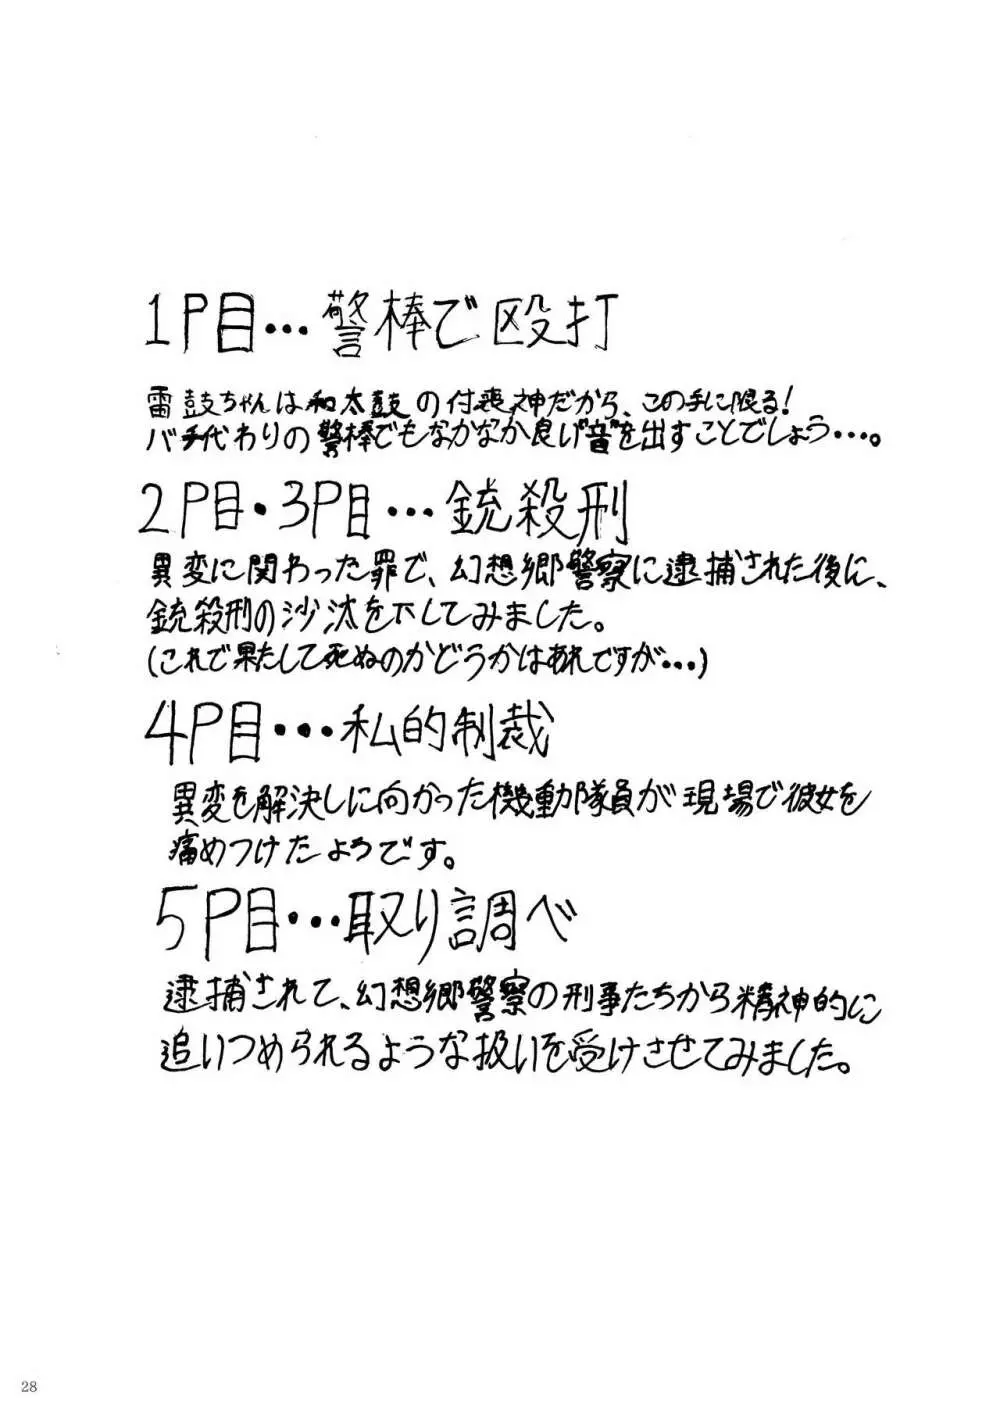 1P目・・・警棒で殴打
雷鼓ちゃんは和太鼓の付喪神だから、この手に限る!
バチ代わりの警棒でもなかなか良い"音"を出すことでしょう・・・。
2P目・3P目・・・銃殺刑
異変に関わった罪で、幻想郷警察に逮捕された後に、
銃殺刑の沙汰を下してみました。
(これで果たして死ぬのかどうかはあれですが・・・)
4P目・・・私的制裁
異変を解決しに向かった機動隊員が現場で彼女を
痛めつけたようです。
5P目・・・取り調べ
逮捕されて、幻想郷警察の刑事たちから精神的に
追いつめられるような扱いを受けさせてみました。
28